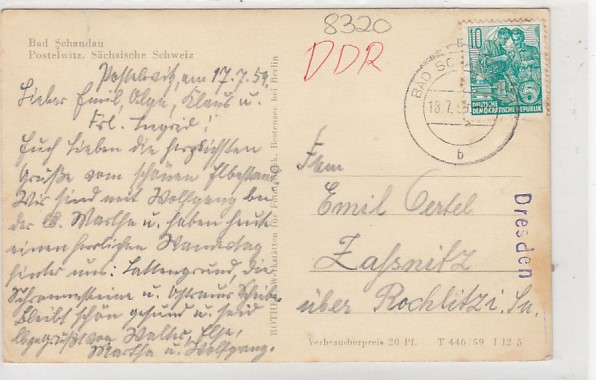 8320
DDR
Bad Schandau
Postelwitz. Sächsische Schweiz
Postelwitz, am 17.7.59.
Lieber Emil, Olga, Klaus u.
Frl. Ingrid!
Euch Lieben die herzlichsten
Grüße vom schönen Elbestand.
Wir sind mit Wolfgang bei
der Martha u. haben heute
einen herrlichen Wandertag
hinter uns: Lattengrund, die
Schrammsteine u. Ostrauer Scheibe.
Bleibt schön gesund u. seid
lbgegrüßt von Walter, Else,
Martha u. Wolfgang.
ROTHE, Werkstätten für Bestensee bei Berlin
10
DEUTSCHE
DEMOKRATISCHE REPUBLIK
BAD SC
18.7.
b
Emil Oertel
Zaßnitz
über Rochlitz i. Sa.
Dresden
Verbraucherpreis 20 Pf. T 446/59 I 12 5